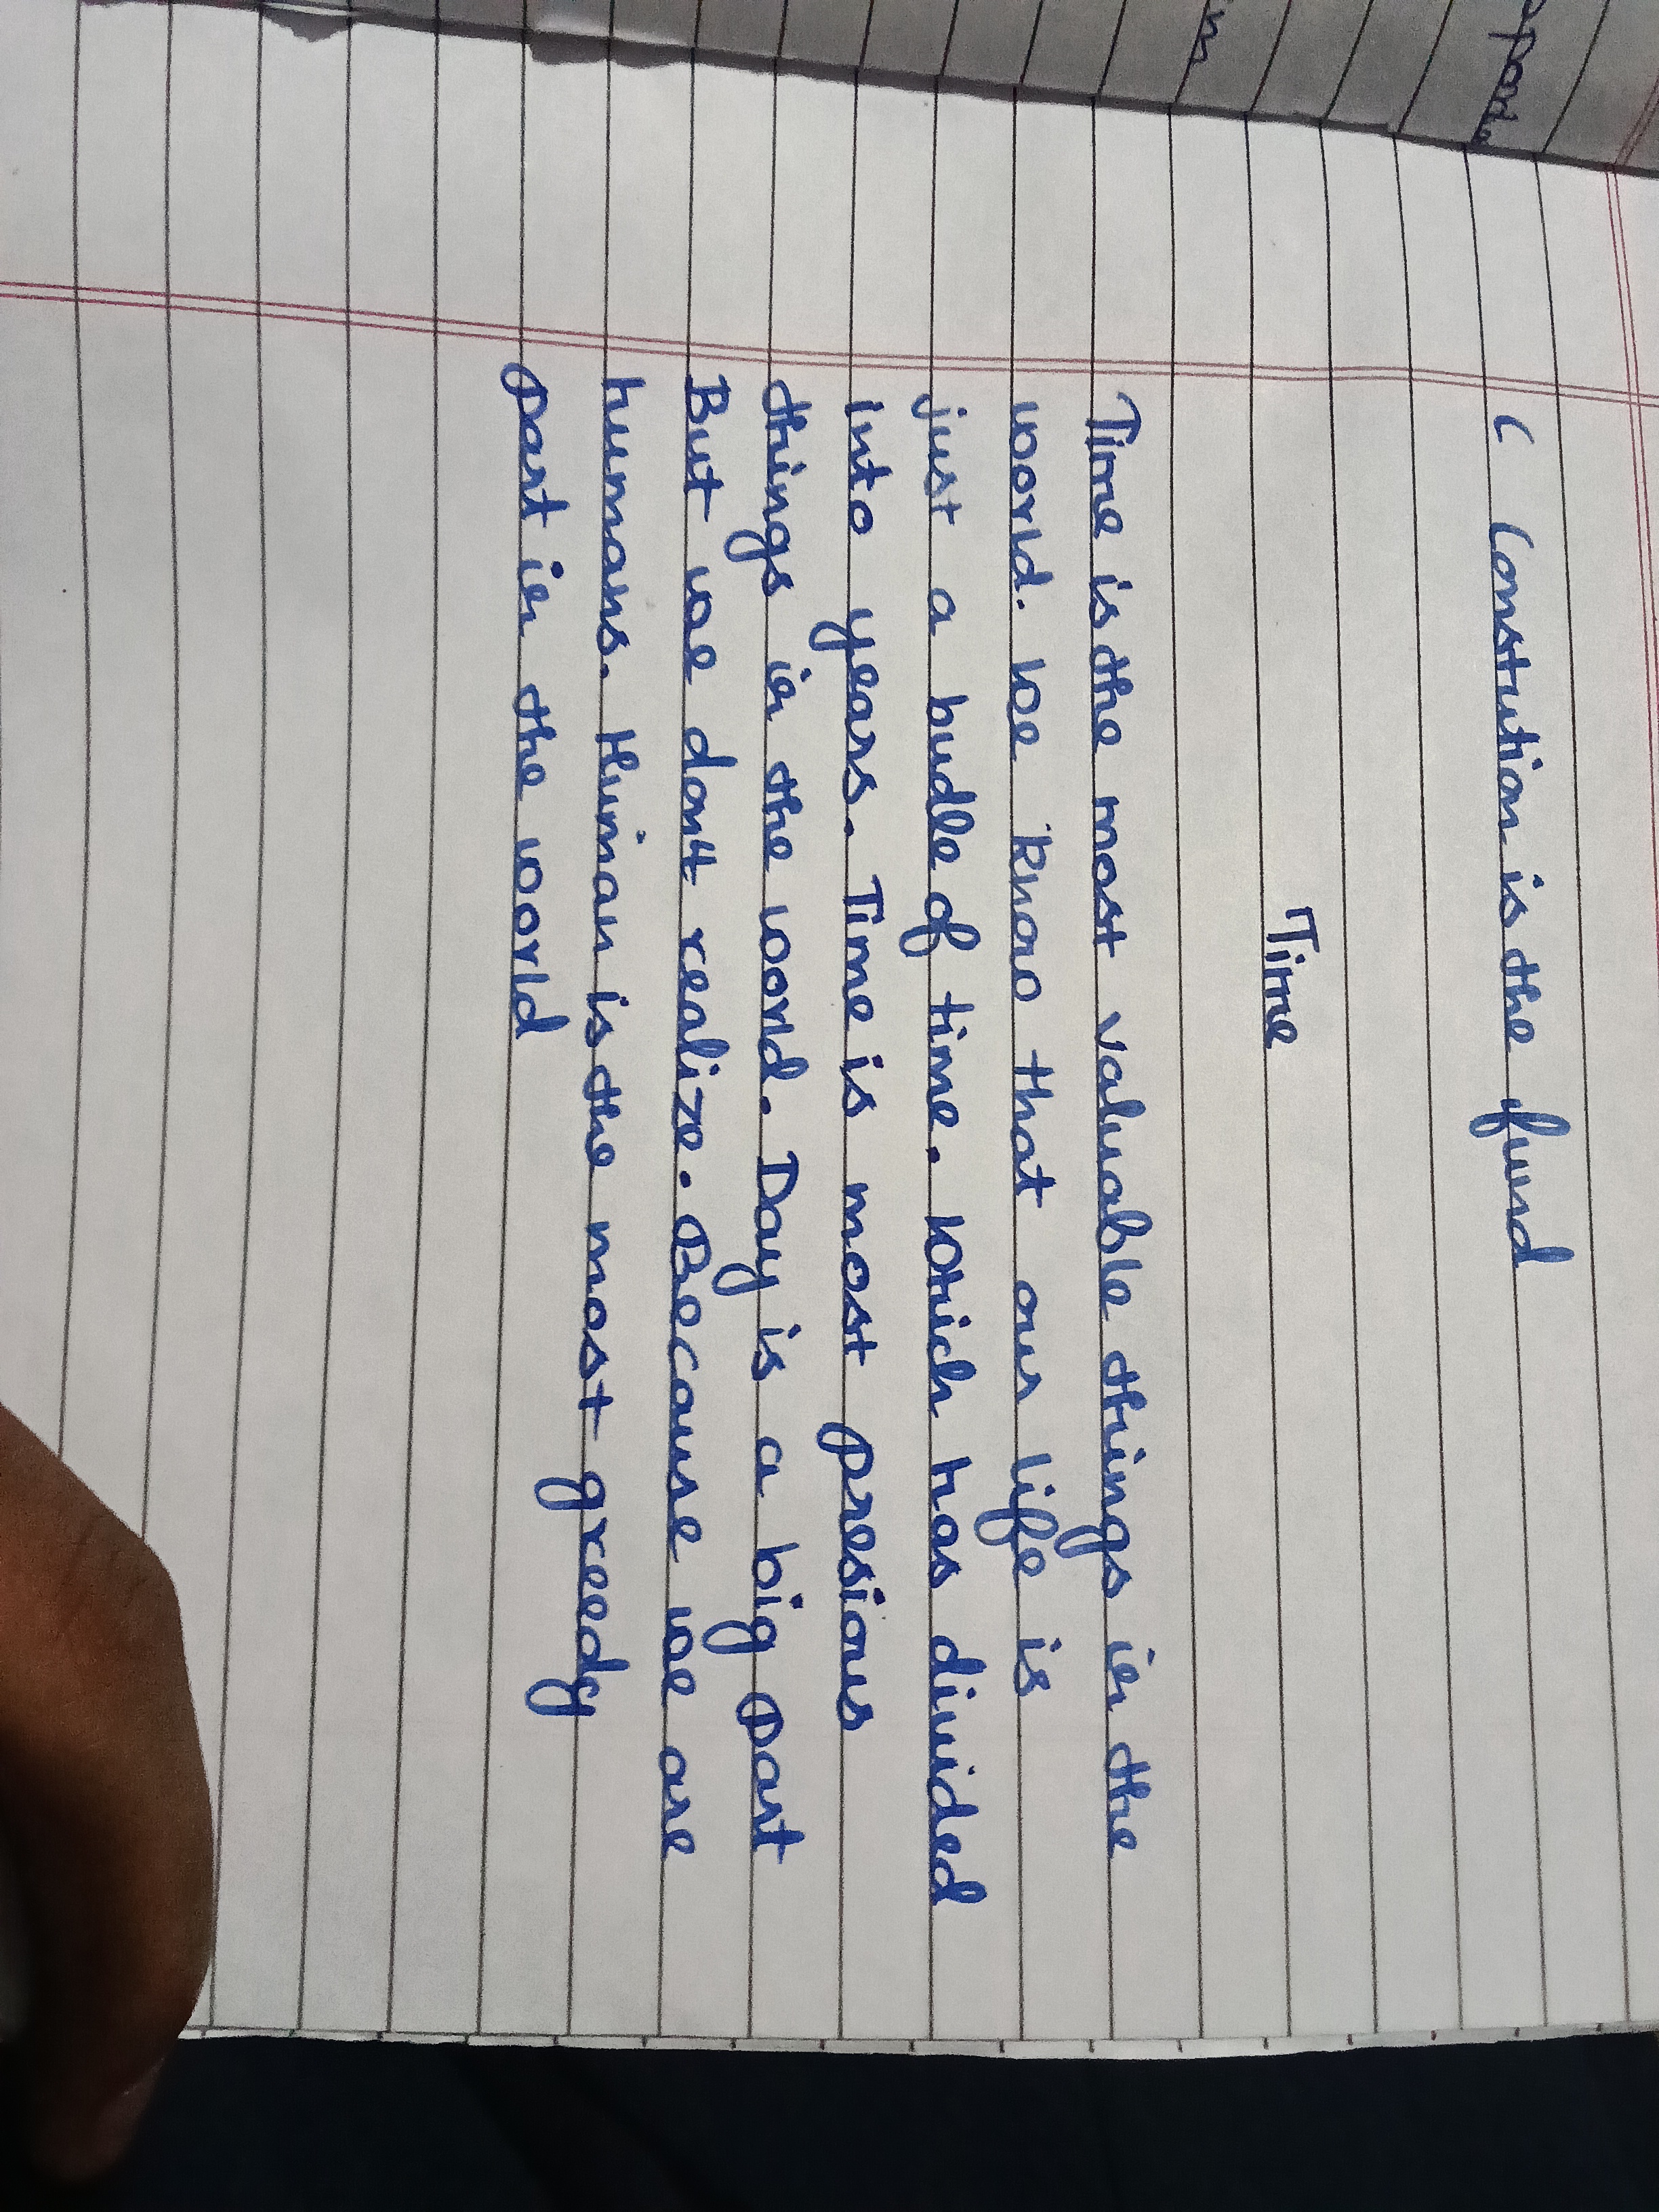 ( Constution is the fund
Time
Time is the most valuable things in the
world. we know that our life is
just a budle of time. which has divided
into years. Time is most presious
things in the world. Day is a big part
But we don't realize. Because we are
humans. Human is the most greedy
part in the world